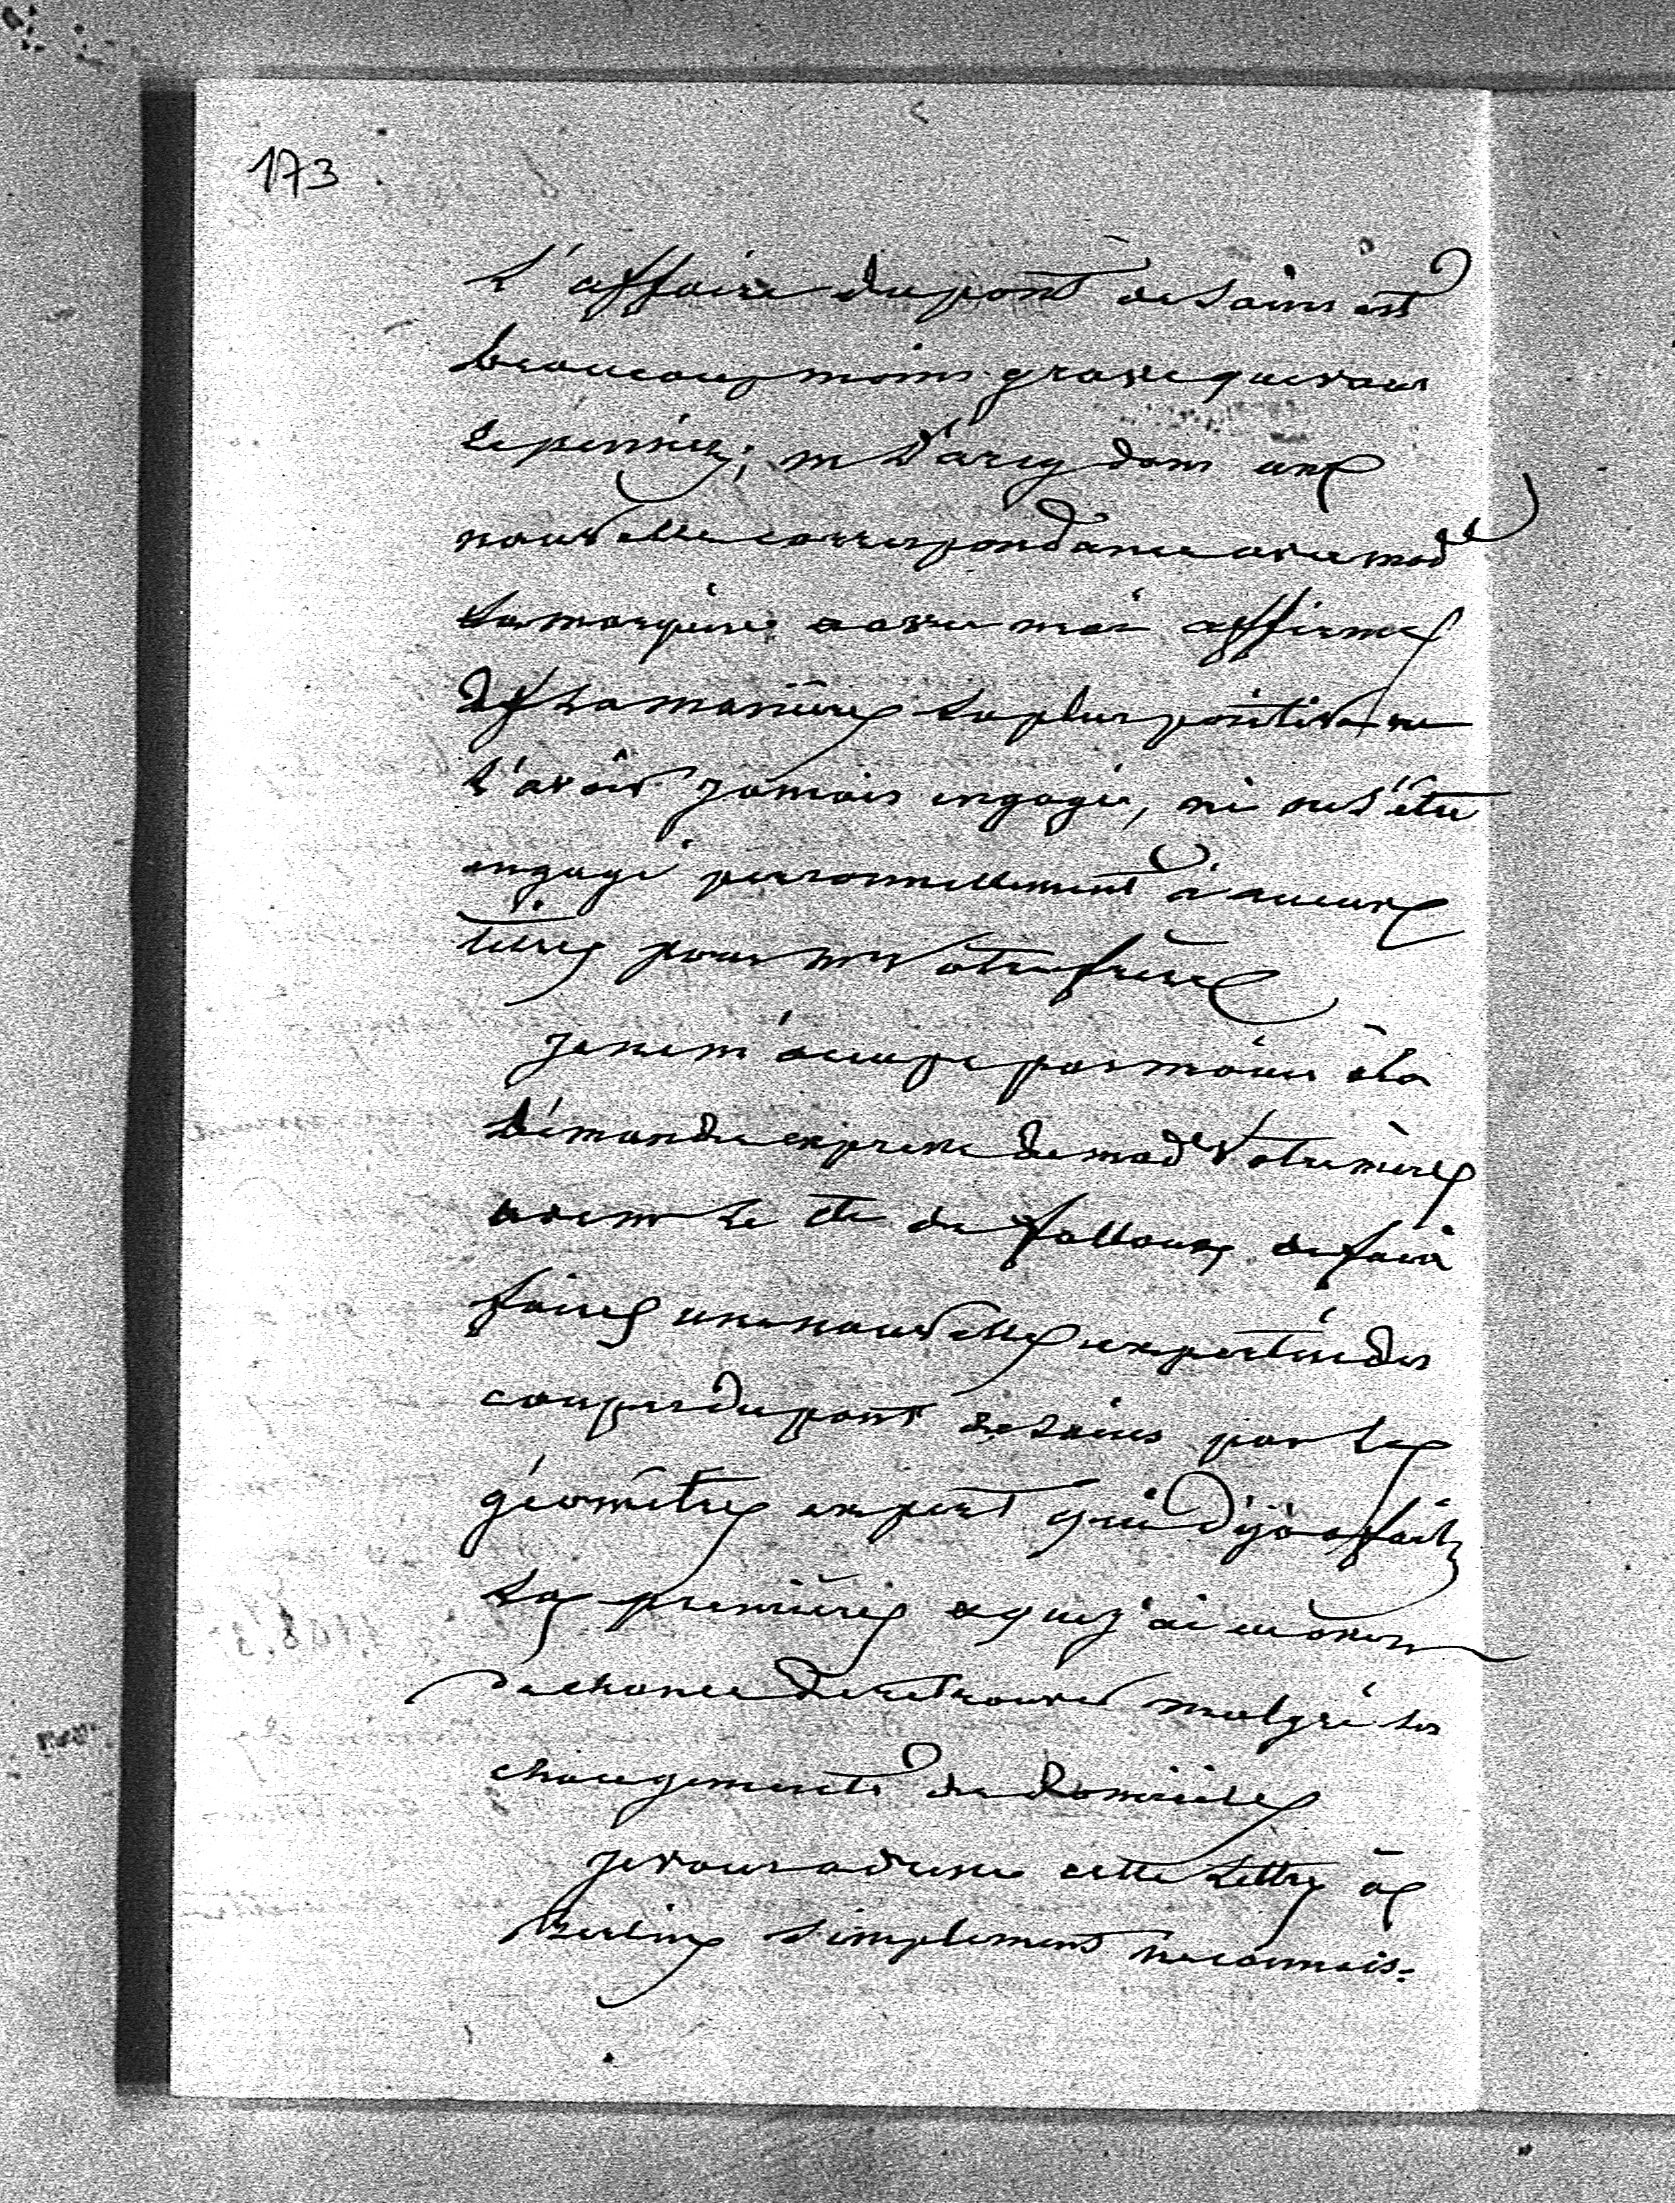 173
L'affaire du pont de Sains est
beaucoup moins grave que vous
le pensiez; m D'arcy dans une
nouvelle correspondance avec mad
La marquise & avec moi affirme
de La manière La plus positive ne
L'avoir jamais engagée, ni ne s'être
engagé personnellement à aucun
titre pour mr Votre frère
je ne m'occupe pas moins à la
Démande expresse de made Votre mère
avec mr Le Cte de falloux de faire
faire une nouvelle expertise des
coupes du pont de Sains par Le
géomètre expert qui Déjà a fait
La première & que j'ai eu
La chance de retrouver malgré ses
changements de Domicile
je vous adresse cette Lettre à
Berlin simplement ne connais-